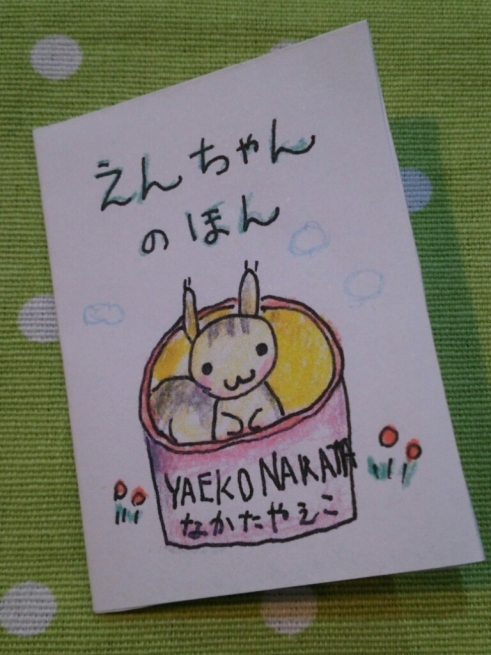 えんちゃん
のほん
YAEKO NAKATA
なかたやえこ